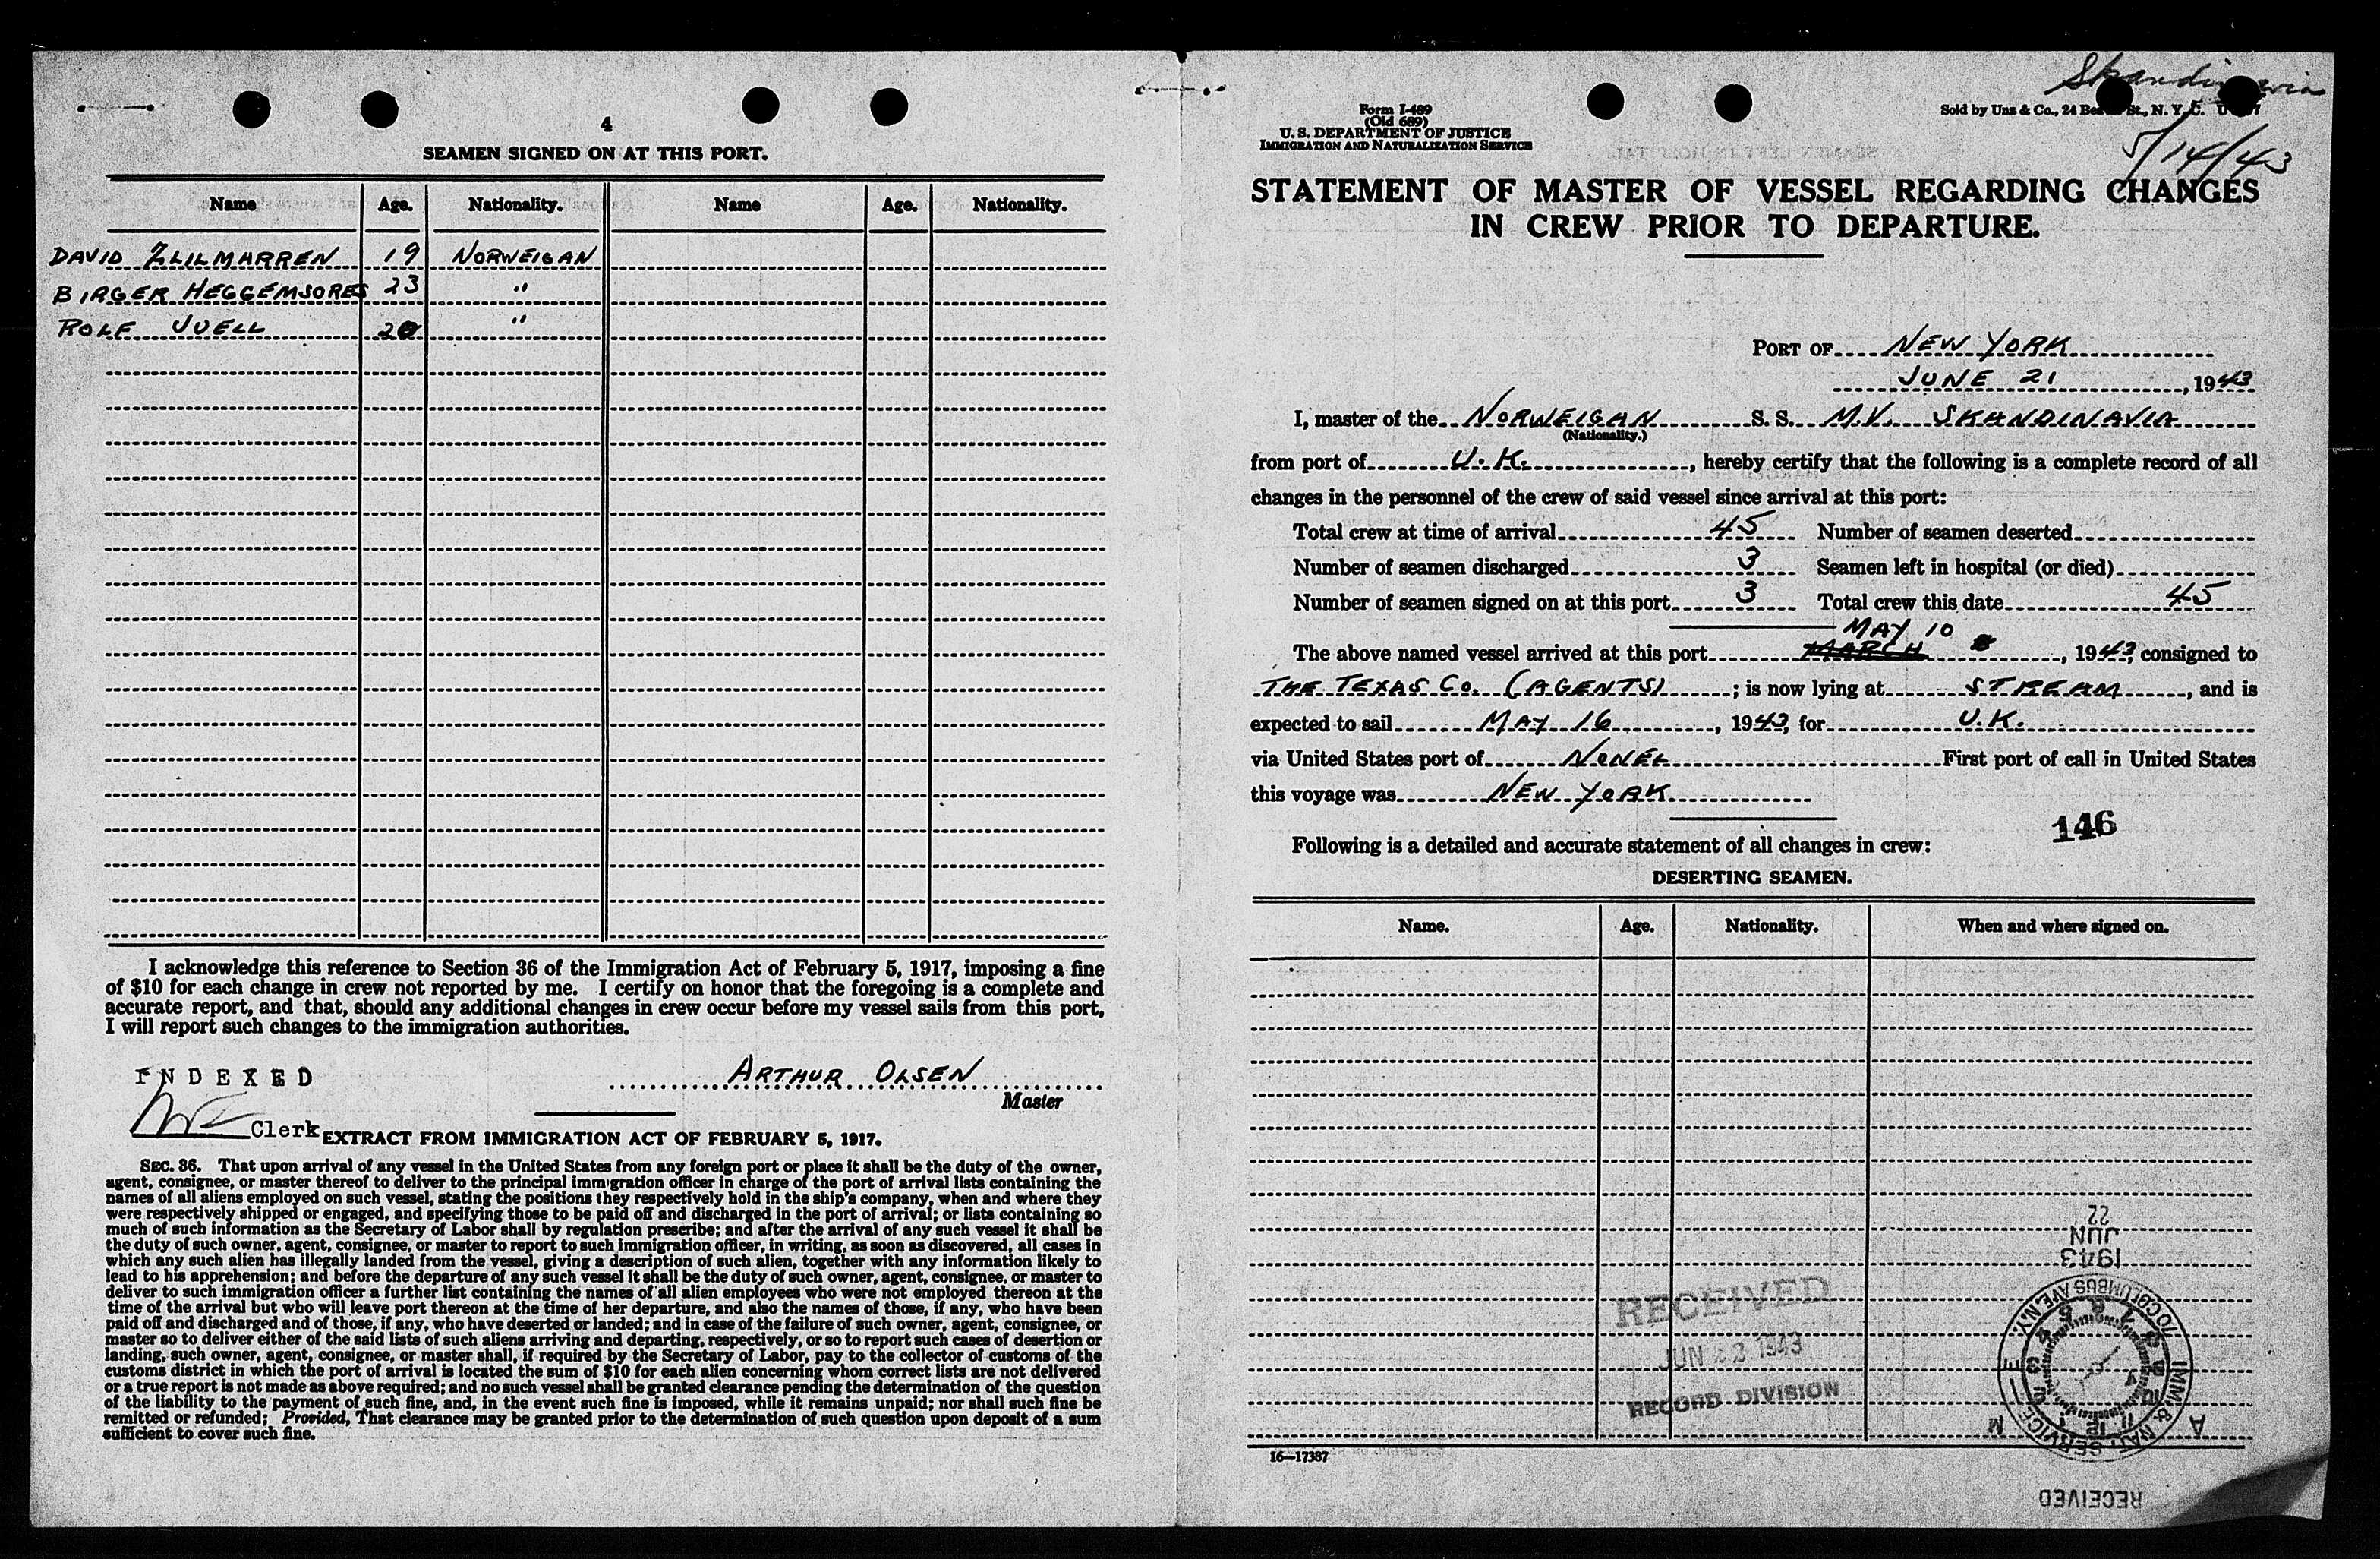 4
SEAMEN SIGNED ON AT THIS PORT.
Name Age. Nationality. Name Age. Nationality.
DAVID ZLILMARREN 19 NORWEIGAN
BIRGER HEGGEMSORES 23 "
ROLF JUELL 20 "
I acknowledge this reference to Section 36 of the Immigration Act of February 5, 1917, imposing a fine
of $10 for each change in crew not reported by me. I certify on honor that the foregoing is a complete and
accurate report, and that, should any additional changes in crew occur before my vessel sails from this port,
I will report such changes to the immigration authorities.
INDEXED
ARTHUR OLSEN
Master
Clerk
EXTRACT FROM IMMIGRATION ACT OF FEBRUARY 5, 1917.
SEC. 36. That upon arrival of any vessel in the United States from any foreign port or place it shall be the duty of the owner,
agent, consignee, or master thereof to deliver to the principal immigration officer in charge of the port of arrival lists containing the
names of all aliens employed on such vessel, stating the positions they respectively hold in the ship's company, when and where they
were respectively shipped or engaged, and specifying those to be paid off and discharged in the port of arrival; or lists containing so
much of such information as the Secretary of Labor shall by regulation prescribe; and after the arrival of any such vessel it shall be
the duty of such owner, agent, consignee, or master to report to such immigration officer, in writing, as soon as discovered, all cases in
which any such alien has illegally landed from the vessel, giving a description of such alien, together with any information likely to
lead to his apprehension; and before the departure of any such vessel it shall be the duty of such owner, agent, consignee, or master to
deliver to such immigration officer a further list containing the names of all alien employees who were not employed thereon at the
time of the arrival but who will leave port thereon at the time of her departure, and also the names of those, if any, who have been
paid off and discharged and of those, if any, who have deserted or landed; and in case of the failure of such owner, agent, consignee, or
master so to deliver either of the said lists of such aliens arriving and departing, respectively, or so to report such cases of desertion or
landing, such owner, agent, consignee, or master shall, if required by the Secretary of Labor, pay to the collector of customs of the
customs district in which the port of arrival is located the sum of $10 for each alien concerning whom correct lists are not delivered
or a true report is not made as above required; and no such vessel shall be granted clearance pending the determination of the question
of the liability to the payment of such fine, and, in the event such fine is imposed, while it remains unpaid; nor shall such fine be
remitted or refunded; Provided, That clearance may be granted prior to the determination of such question upon deposit of a sum
sufficient to cover such fine.
Skandinavia
Form I-489
(Old 689)
U. S. DEPARTMENT OF JUSTICE
IMMIGRATION AND NATURALIZATION SERVICE
Sold by Uns & Co., 24 St., N. Y. C.
5/14/43
STATEMENT OF MASTER OF VESSEL REGARDING CHANGES
IN CREW PRIOR TO DEPARTURE.
PORT OF NEW YORK
JUNE 21, 1943
I, master of the NORWEIGAN S. S. M.V. SKANDINAVIA
(Nationality.)
from port of U.K., hereby certify that the following is a complete record of all
changes in the personnel of the crew of said vessel since arrival at this port:
Total crew at time of arrival 45 Number of seamen deserted
Number of seamen discharged 3 Seamen left in hospital (or died)
Number of seamen signed on at this port 3 Total crew this date 45
MAY 10
The above named vessel arrived at this port MARCH, 1943, consigned to
THE TEXAS CO. (AGENTS); is now lying at STREAM, and is
expected to sail MAY 16, 1943, for U.K.
via United States port of NONE First port of call in United States
this voyage was NEW YORK
146
Following is a detailed and accurate statement of all changes in crew:
DESERTING SEAMEN.
Name. Age. Nationality. When and where signed on.
22
JUN
1943
RECEIVED
JUN 22 1943
RECORD DIVISION
70 COLUMBUS AVE. N.Y.
IMM. & NAT. SERVICE
16—17387
RECEIVED